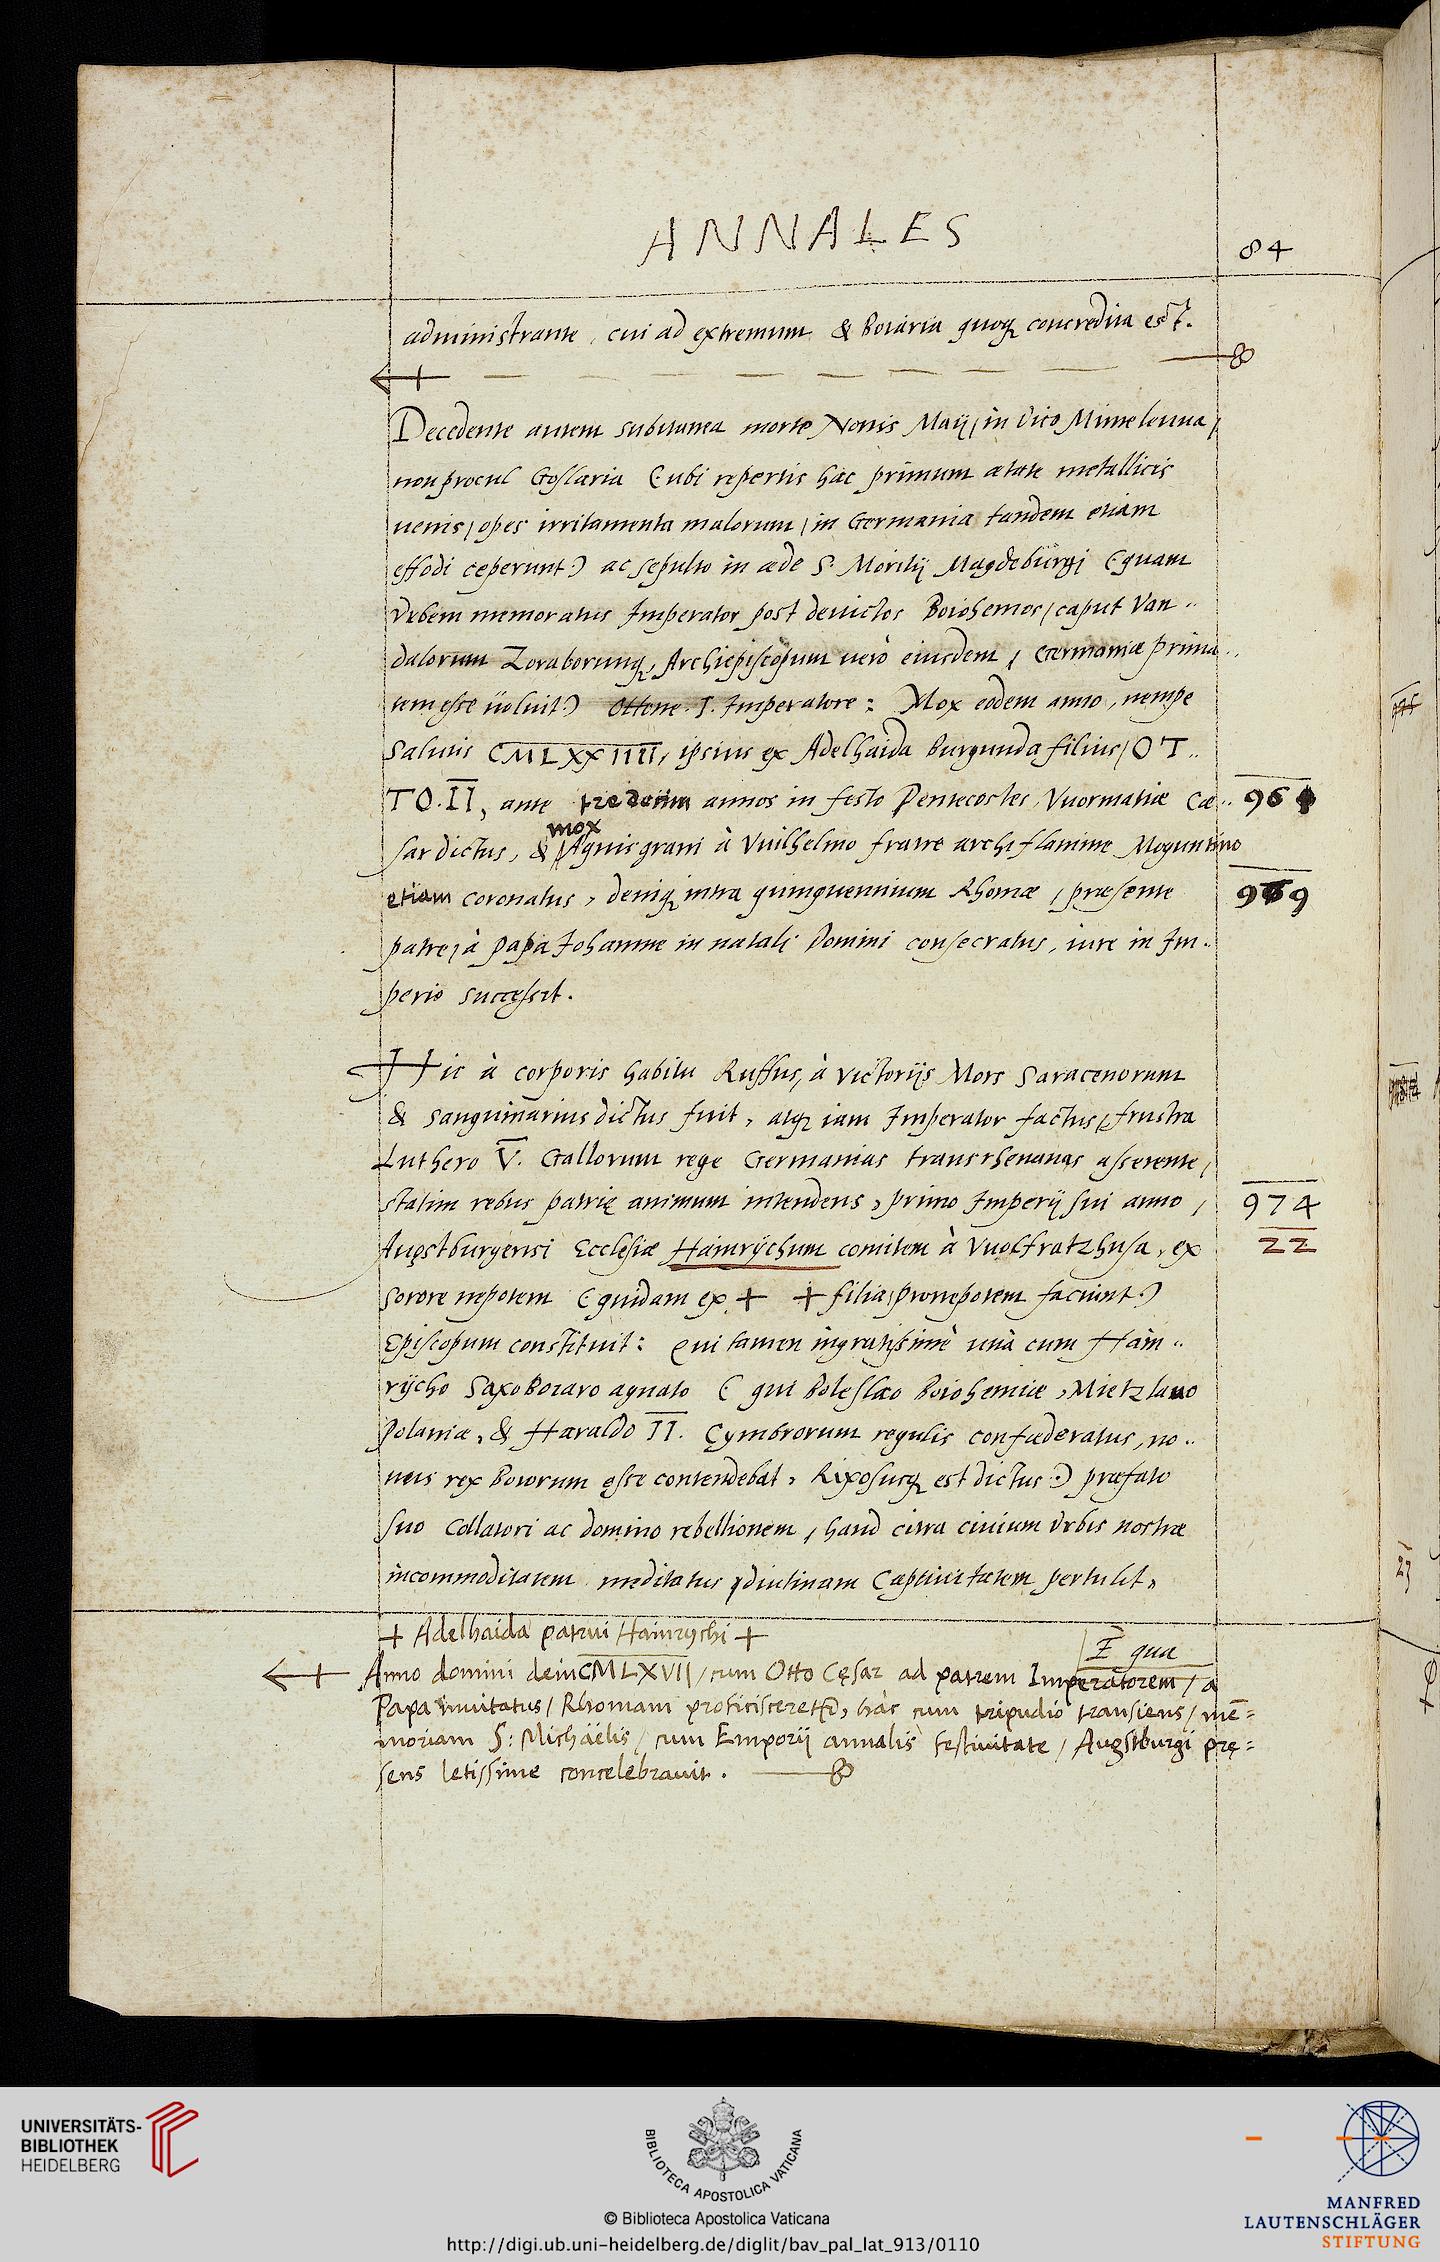 ANNALES
84
administrante, cui ad extremum & Boiaria quoq concredita est.
Decedente autem subitanea morte Nonis Maij, in Vico Mimelevua,
non procul Goslaria (ubi repertis hac primum ætate metallicis
uenis, opes irritamenta malorum, in Germania tandem etiam
effodi ceperunt) ac sepulto in æde S. Moritij Magdebürgi (quam
Vrbem memoratus Imperator post deuictos Boiohemos, caput Van..
dalorum Zoraborumq, Archiepiscopum uero eiusdem, Germaniæ prima..
tem esse üoluit) Ottone. I. Imperatore: Mox eodem anno, nempe
Salutis CMLXXIIII, ipsius ex Adelhaida Burgunda filius, OT..
TO.II, ante tredecim annos in festo Pentecostes, Vuormatiæ Cæ.. 96
mox
sar dictus, & Aquisgrani à Vuilhelmo fratre archiflamine Moguntino
etiam coronatus, deniq intra quinquennium Rhomæ, præsente 969
patre, à Papa Johanne in natali Domini consecratus, iure in Im..
perio successit.
Hic à corporis habitu Ruffus, à victorijs Mors Saracenorum
& Sanguinarius dictus fuit, atq iam Imperator factus, frustra
Luthero V. Gallorum rege Germanias transrhenanas asserente,
statim rebus patrię animum intendens, primo Imperij sui anno, 974
Augstburgensi Ecclesiæ Hainrychum comitem à Vuolfratzhusa, ex 22
sorore nepotem (quidam ex + + filia, pronepotem faciunt)
Episcopum constituit: Qui tamen ingratissimè unà cum Hain..
rÿcho SaxoBoiaro agnato ( qui Boleslao Boiohemiæ, Mietzlauo
Polaniæ, & Haraldo II. Cymbrorum regulis confœderatus, no..
uus rex Boiorum esse contendebat, Rixosusq est dictus) præfato
suo Collatori ac domino rebellionem, haud citra ciuium Vrbis nostræ
incommoditatem meditatus, diutinam Captiuitatem pertulit.
+ Adelhaida patrui Hainrychi +
E qua
Anno domini dein CMLXVII, cum Otto Cęsar ad patrem Imperatorem, a
Papa inuitatus, Rhomam proficisceretur, hàc cum tripudio transiens, me=
moriam S: Michäelis, cum Emporij annalis festiuitate, Augstburgi prę=
sens letissime concelebrauit.
UNIVERSITÄTS-
BIBLIOTHEK
HEIDELBERG
BIBLIOTECA APOSTOLICA VATICANA
© Biblioteca Apostolica Vaticana
http://digi.ub.uni-heidelberg.de/diglit/bav_pal_lat_913/0110
MANFRED
LAUTENSCHLÄGER
STIFTUNG